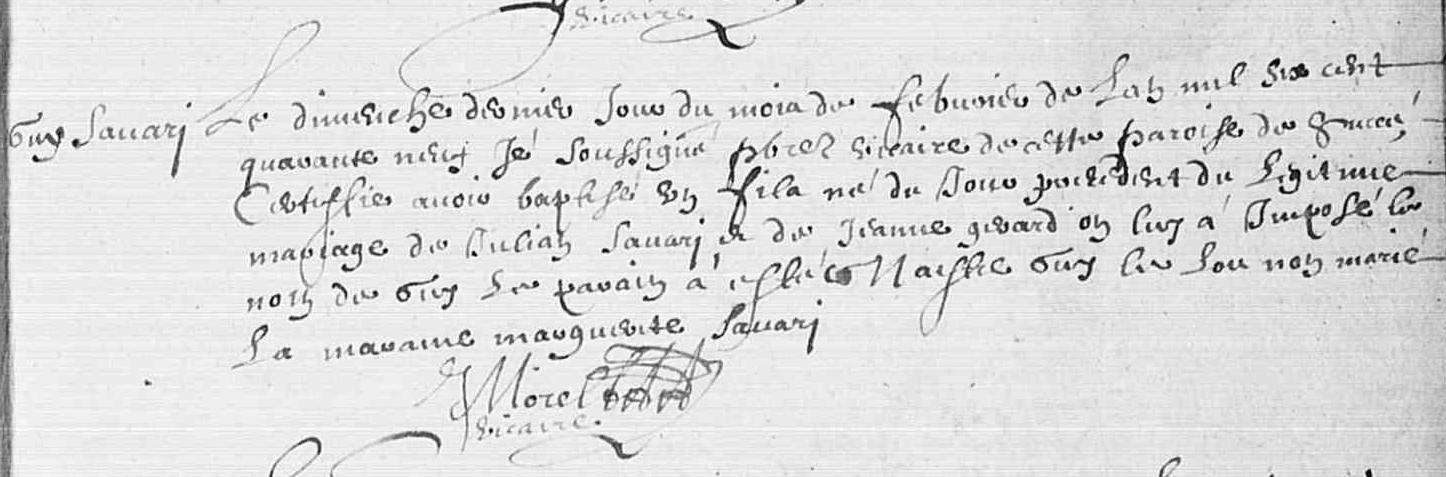 vicaire
Guy Savari
Le dimenche dernier Jour du mois de febvrier de Lan mil six cent
quarante neuf Je soussigné pbre vicaire de cette paroise de
Certiffie avoir baptisé un fils né du Jour precedent du Legitime
mariage de Julian Savari et de Jeanne gerard on luy a Imposé le
nom de Guy Le parain a esté Guy le non marié
La maraine marguerite Savari
Morel
vicaire.